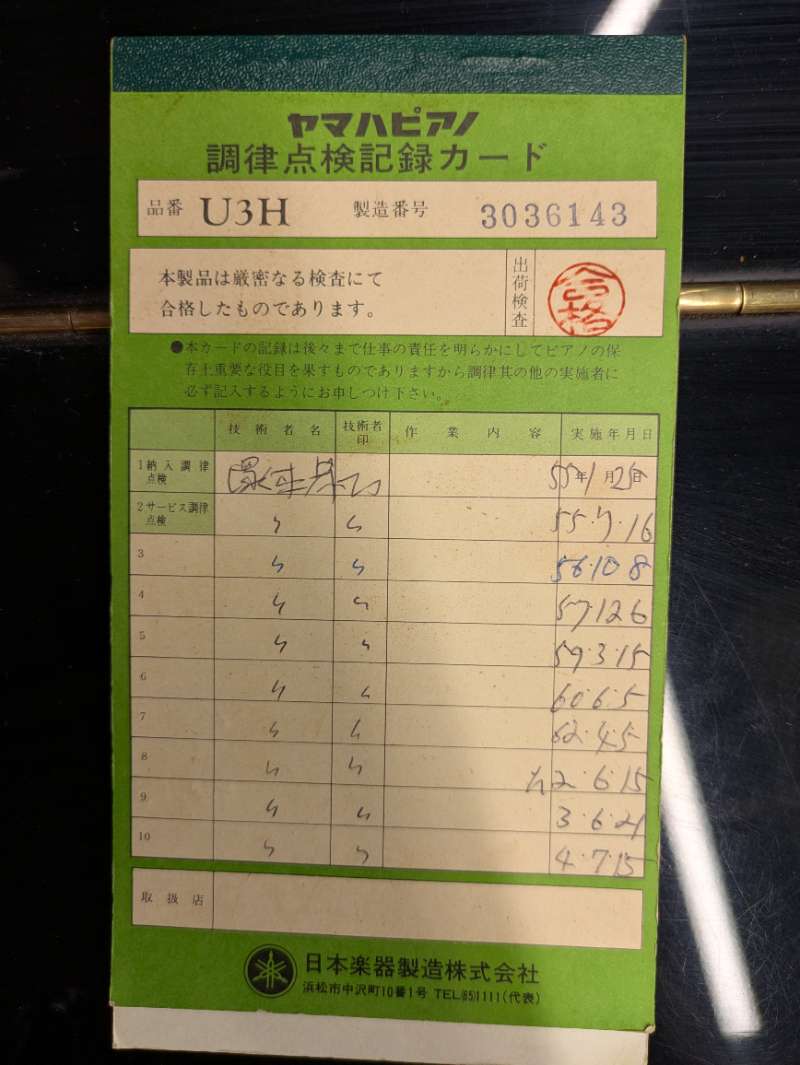 ヤマハピアノ
調律点検記録カード
品番 U3H 製造番号 3036143
本製品は厳密なる検査にて
合格したものであります。
出荷検査
合格
●本カードの記録は後々まで仕事の責任を明らかにしてピアノの保
存上重要な役目を果すものでありますから調律其の他の実施者に
必ず記入するようにお申しつけ下さい。
技術者名 技術者印 作業内容 実施年月日
1 納入調律点検 55年1月25日
2 サービス調律点検 〃 〃 55・7・16
3 〃 〃 56・10・8
4 〃 〃 57・12・6
5 〃 〃 59・3・15
6 〃 〃 60・6・5
7 〃 〃 62・4・5
8 〃 〃 2・6・15
9 〃 〃 3・6・21
10 〃 〃 4・7・15
取扱店
日本楽器製造株式会社
浜松市中沢町10番1号 TEL(65)1111(代表)